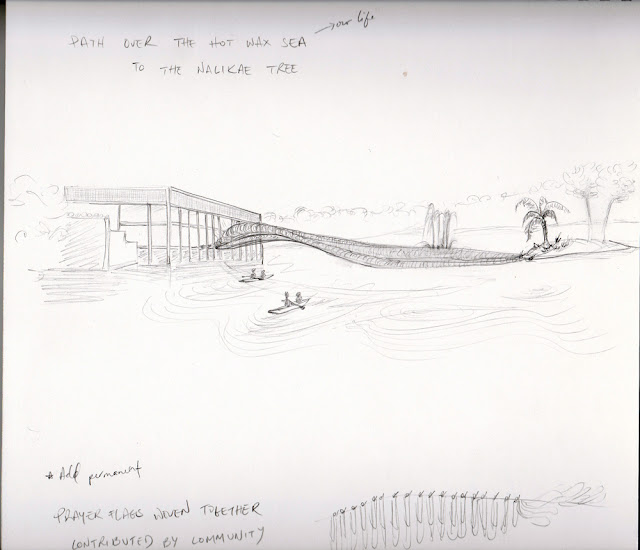 PATH OVER THE HOT WAX SEA → our life
TO THE NALIKAE TREE
* Add permanent
PRAYER FLAGS WOVEN TOGETHER
CONTRIBUTED BY COMMUNITY